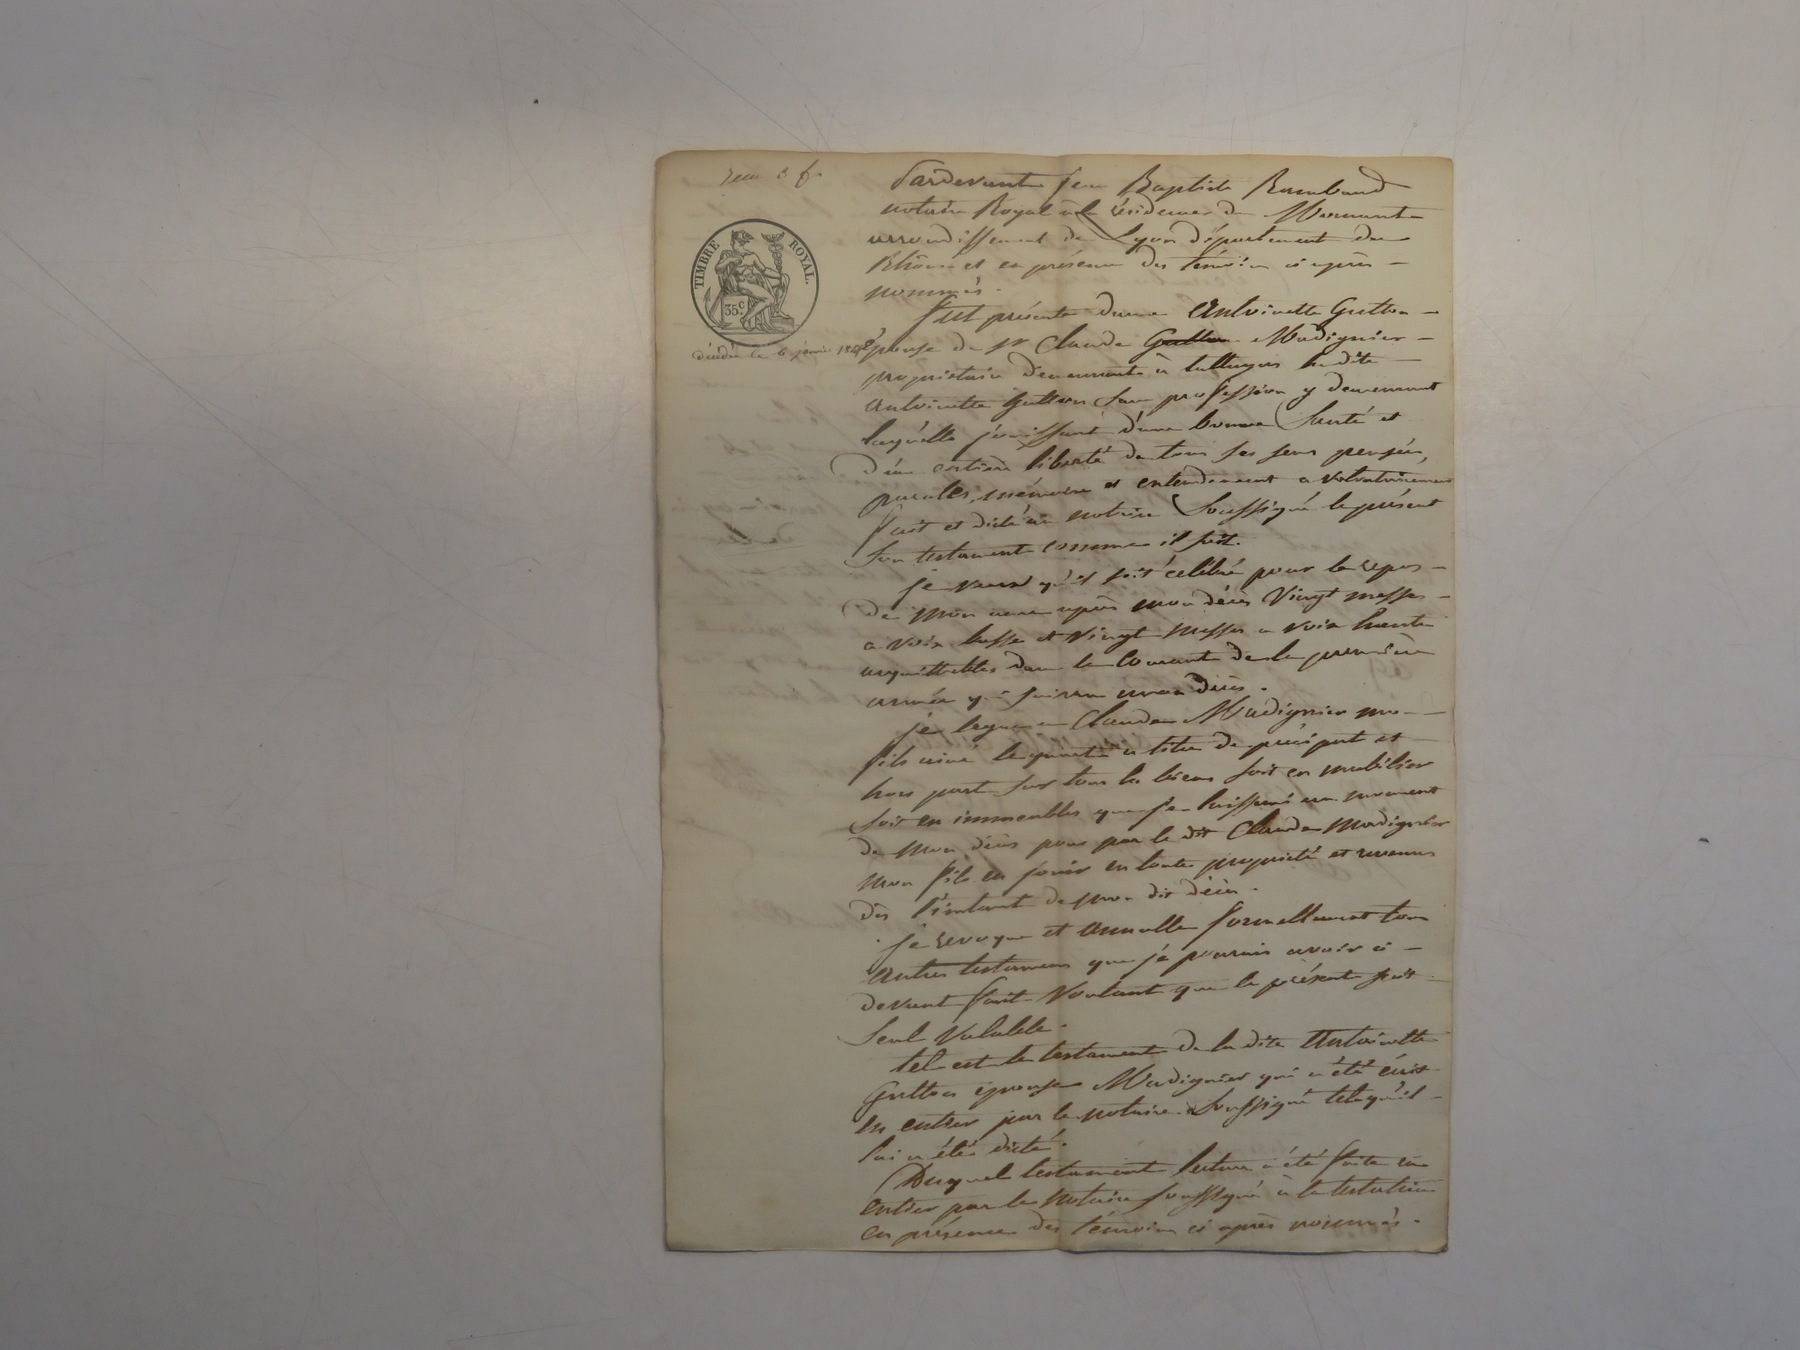 TIMBRE ROYAL.
35c
décédée le 6 janvier
Pardevant Jean Baptiste Rambaud
notaire Royal à la résidence de Mornant
arrondissement de Lyon département du
Rhône et en présence des témoins ci après
nommés.
Fut présente dame Antoinette Gutton
épouse de Sr Claude Gutton Madignier
propriétaire demeurant à ladite
Antoinette Gutton sans profession y demeurant
laquelle jouissant d'une bonne santé et
d'une entière liberté de tous ses sens pensée,
paroles, mémoire et entendement a volontairement
fait et dicté au notaire soussigné le présent
son testament comme il suit.
Je veux qu'il soit célébré pour le repos
de mon ame après mon décès vingt messes
a voix basse et vingt messes a voix haute
acquittables dans le courant de la première
année qui suivra mon décès.
je legue a Claude Madignier mon
fils ainé le quart à titre de préciput et
hors part sur tous les biens soit en mobilier
soit en immeubles que je laisserai au moment
de mon décès pour par le dit Claude Madignier
mon fils en jouir en toute propriété et revenus
dès l'instant de mon dit décès.
je revoque et annulle formellement tous
autres testamens que je pourais avoir ci
devant fait voulant que le présent soit
seul valable.
tel est le testament de la dite Antoinette
Gutton épouse Madignier qui a été écrit
en entier par le notaire soussigné tel qu'il
lui a été dicté.
Duquel testament lecture a été faite en
entier par le notaire soussigné à la testatrice
en présence des témoins ci après nommés.